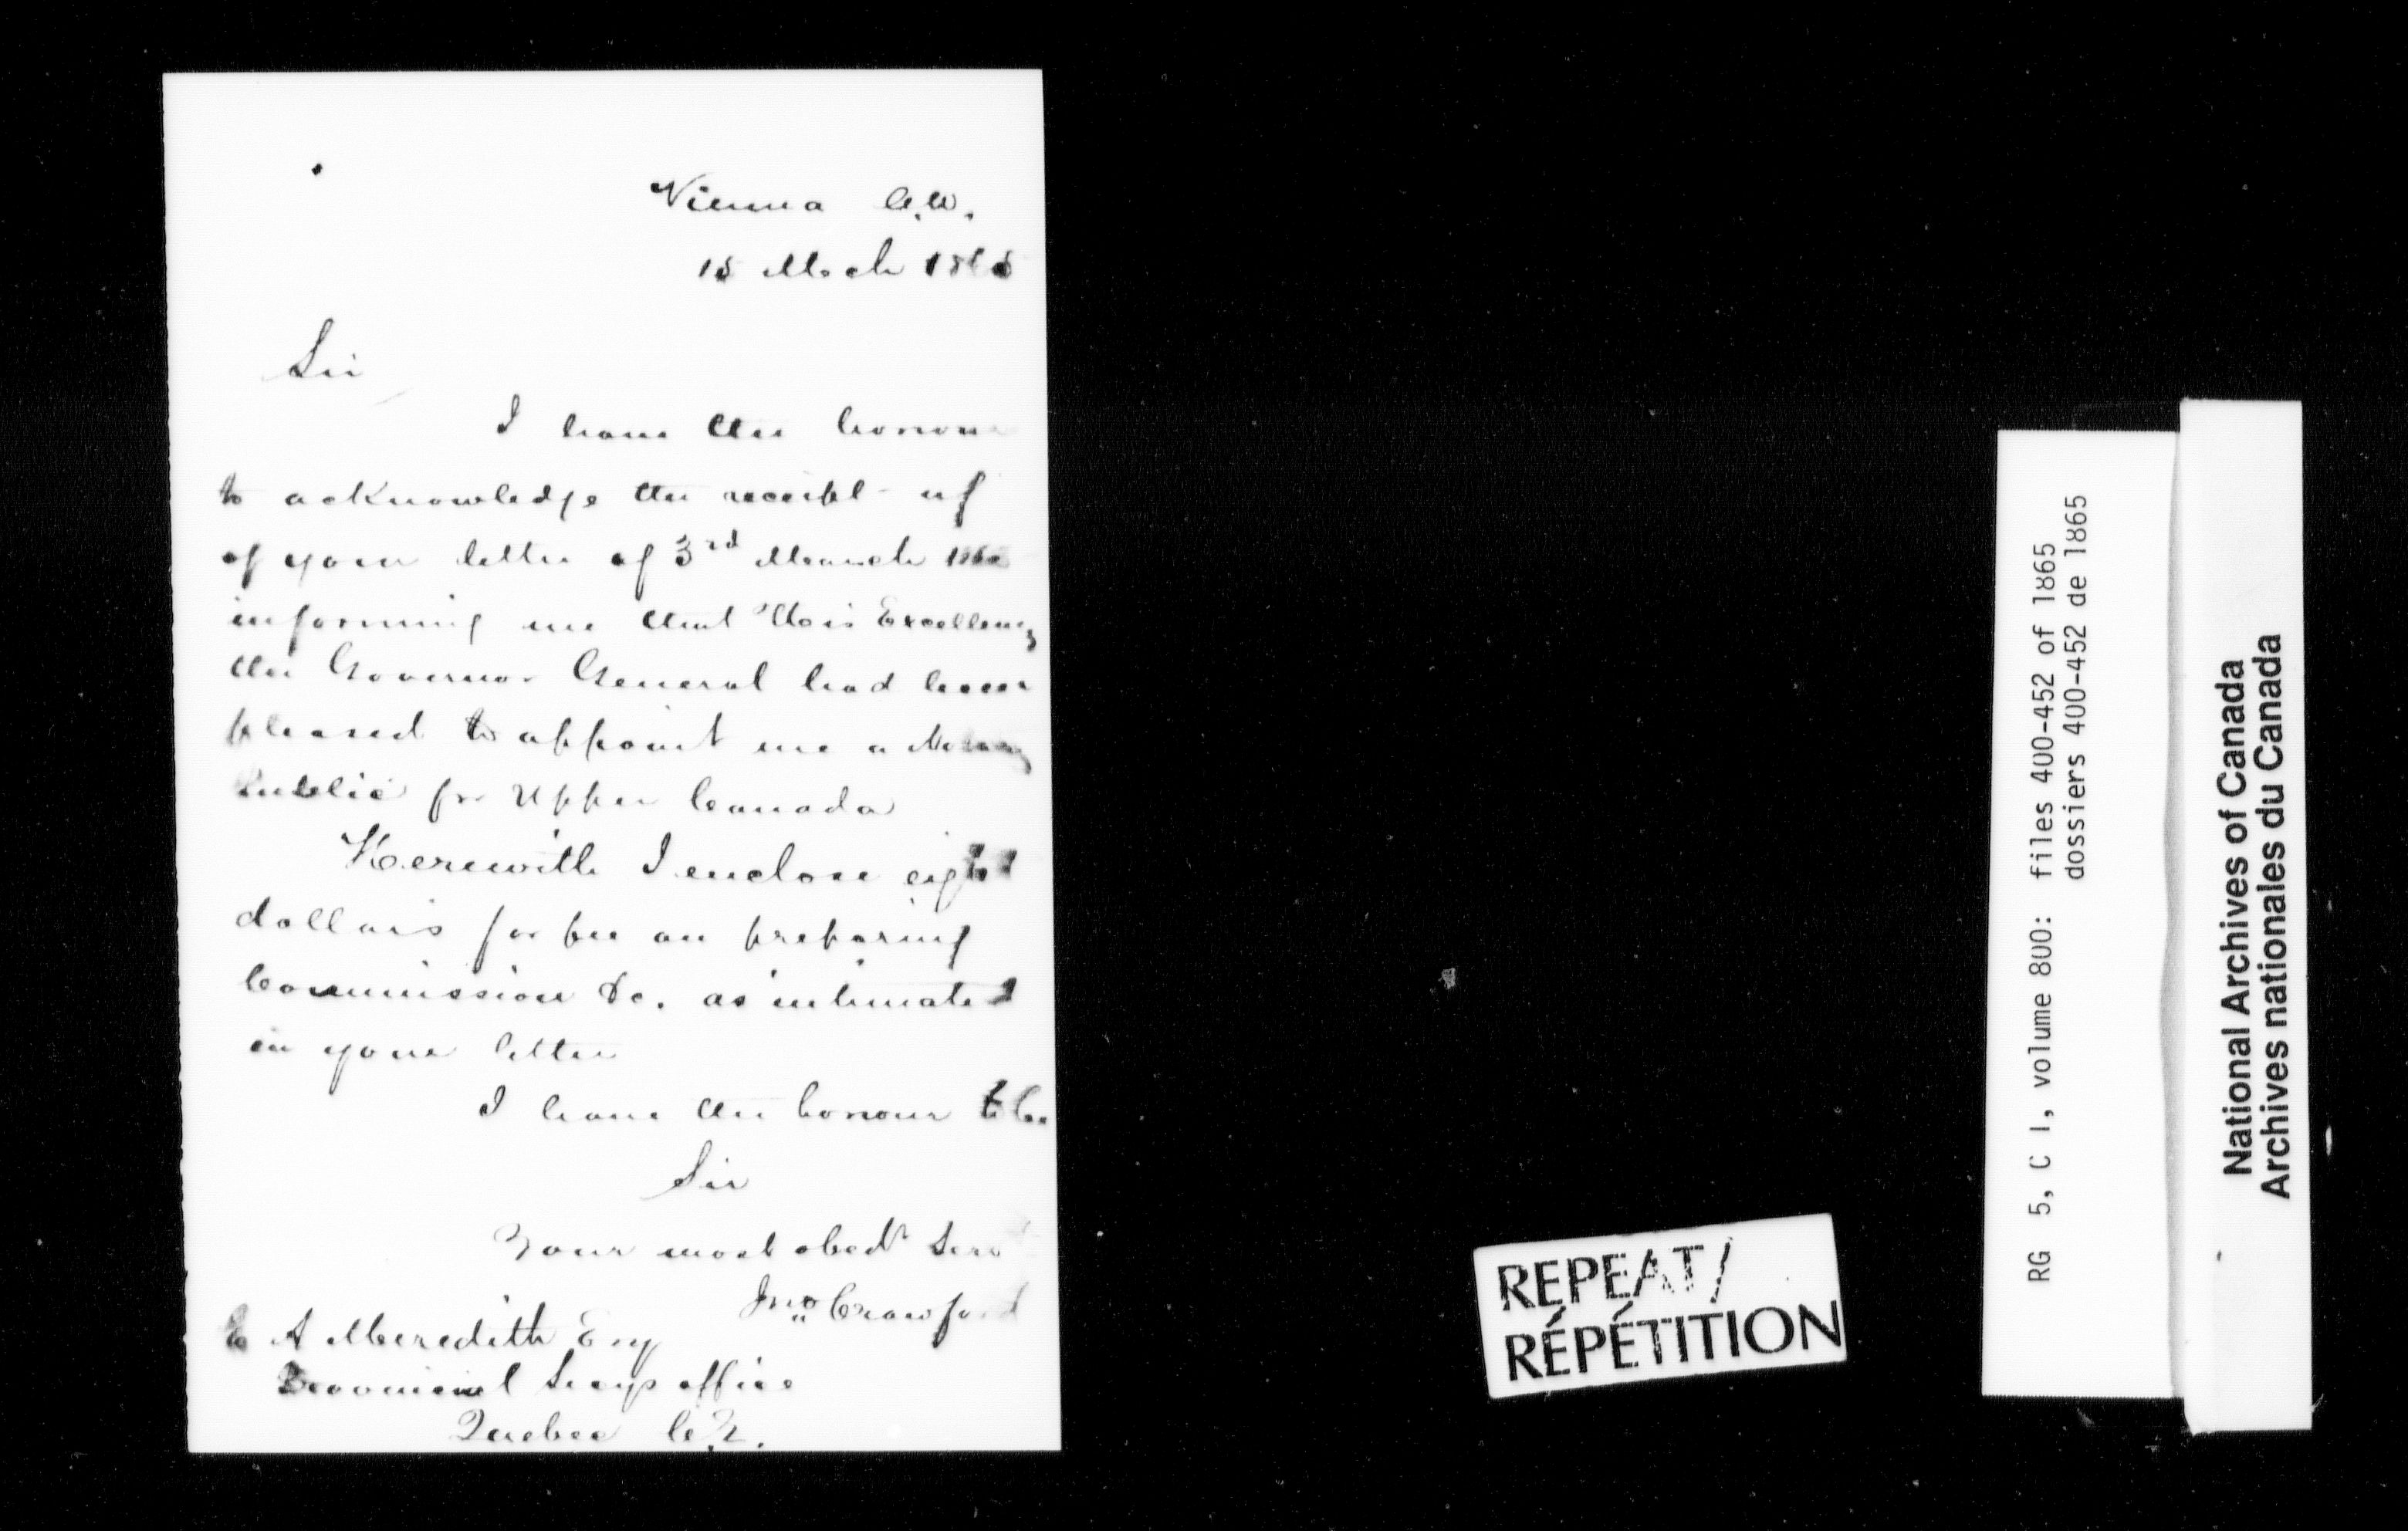 Vienna C.W.
15 March 1865
Sir
I have the honour
to acknowledge the receipt of
of your letter of 3rd March 1865
informing me that His Excellency
the Governor General had been
pleased to appoint me a Notary
Public for Upper Canada
Herewith I enclose eight
dollars for fee on preparing
Commission &c. as intimated
in your letter
I have the honour to be
Sir
Your most obedt Servt
Jno Crawford
E A Meredith Esq
Provincial Secys office
Quebec C.E.
REPEAT/
RÉPÉTITION
RG 5, C 1, volume 800: files 400-452 of 1865
dossiers 400-452 de 1865
National Archives of Canada
Archives nationales du Canada